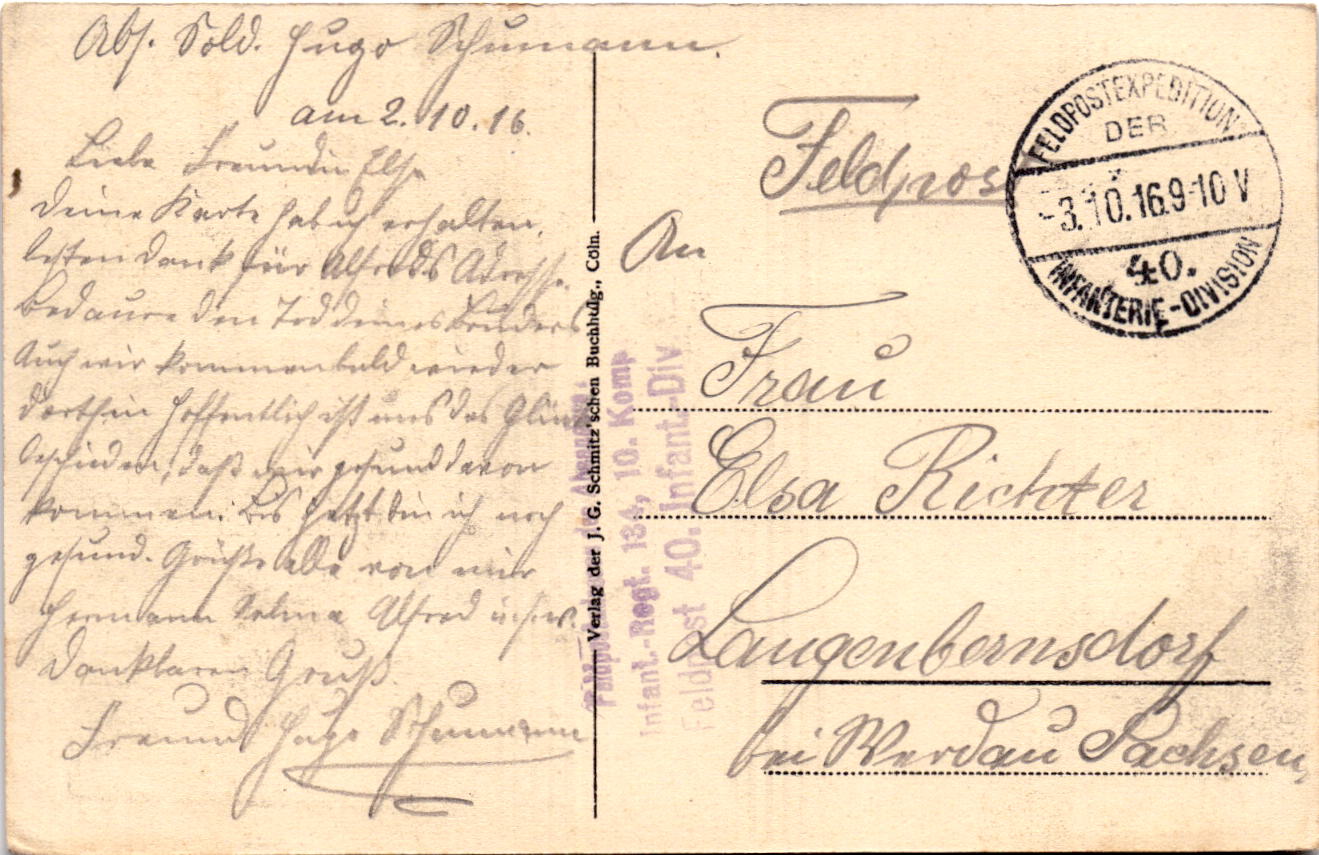 Abs. Sold. Hugo Schumann.
am 2.10.16.
Liebe Freundin Elsa
Deine Karte hab ich erhalten,
besten Dank für Alfreds Adresse.
Bedaure den Tod deines Bruders
Auch wir kommen bald wieder
dorthin hoffentlich ist uns das Glück
beschieden, daß wir gesund davon
kommen. Bis jetzt bin ich noch
gesund. Grüße alle von mir
Hermann Selma Alfred u.s.w.
Dankbaren Gruß
Freund Hugo Schumann
Verlag der J. G. Schmitz'schen Buchhdlg., Cöln.
Infant.-Regt. 134, 10. Komp
Feldpost 40. Infant.-Div
Feldpost
FELDPOSTEXPEDITION
DER
-3.10.16.9-10 V
40.
INFANTERIE-DIVISION
An
Frau
Elsa Richter
Langenbernsdorf
bei Werdau Sachsen,